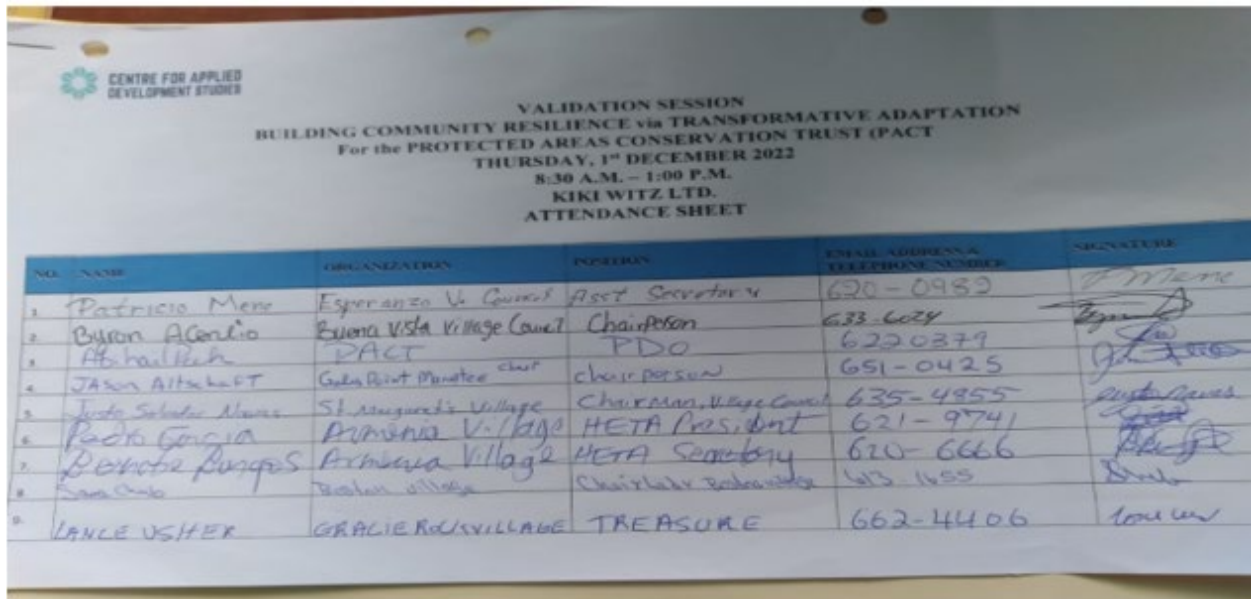 CENTRE FOR APPLIED
DEVELOPMENT STUDIES
VALIDATION SESSION
BUILDING COMMUNITY RESILIENCE via TRANSFORMATIVE ADAPTATION
For the PROTECTED AREAS CONSERVATION TRUST (PACT
THURSDAY, 1st DECEMBER 2022
8:30 A.M. – 1:00 P.M.
KIKI WITZ LTD.
ATTENDANCE SHEET
NO. NAME ORGANIZATION POSITION EMAIL ADDRESS & TELEPHONE NUMBER SIGNATURE
1. Patricio Mene Esperanza V. Council Asst Secretary 620-0982 PMene
2. Byron Buena Vista Village Council Chairperson 633-6024
3. PACT PDO 6220379
4. JASon AltschafT Gales Point Manatee chairperson 651-0425
5. Justo St. Margaret's Village Chairman, Village Council 635-4855
6. Pedro Garcia Armenia Village HETA President 621-9741
7. Armenia Village HETA Secretary 620-6666
8. village 613-1655
9. LANCE USHER GRACIE ROCK VILLAGE TREASURE 662-4406